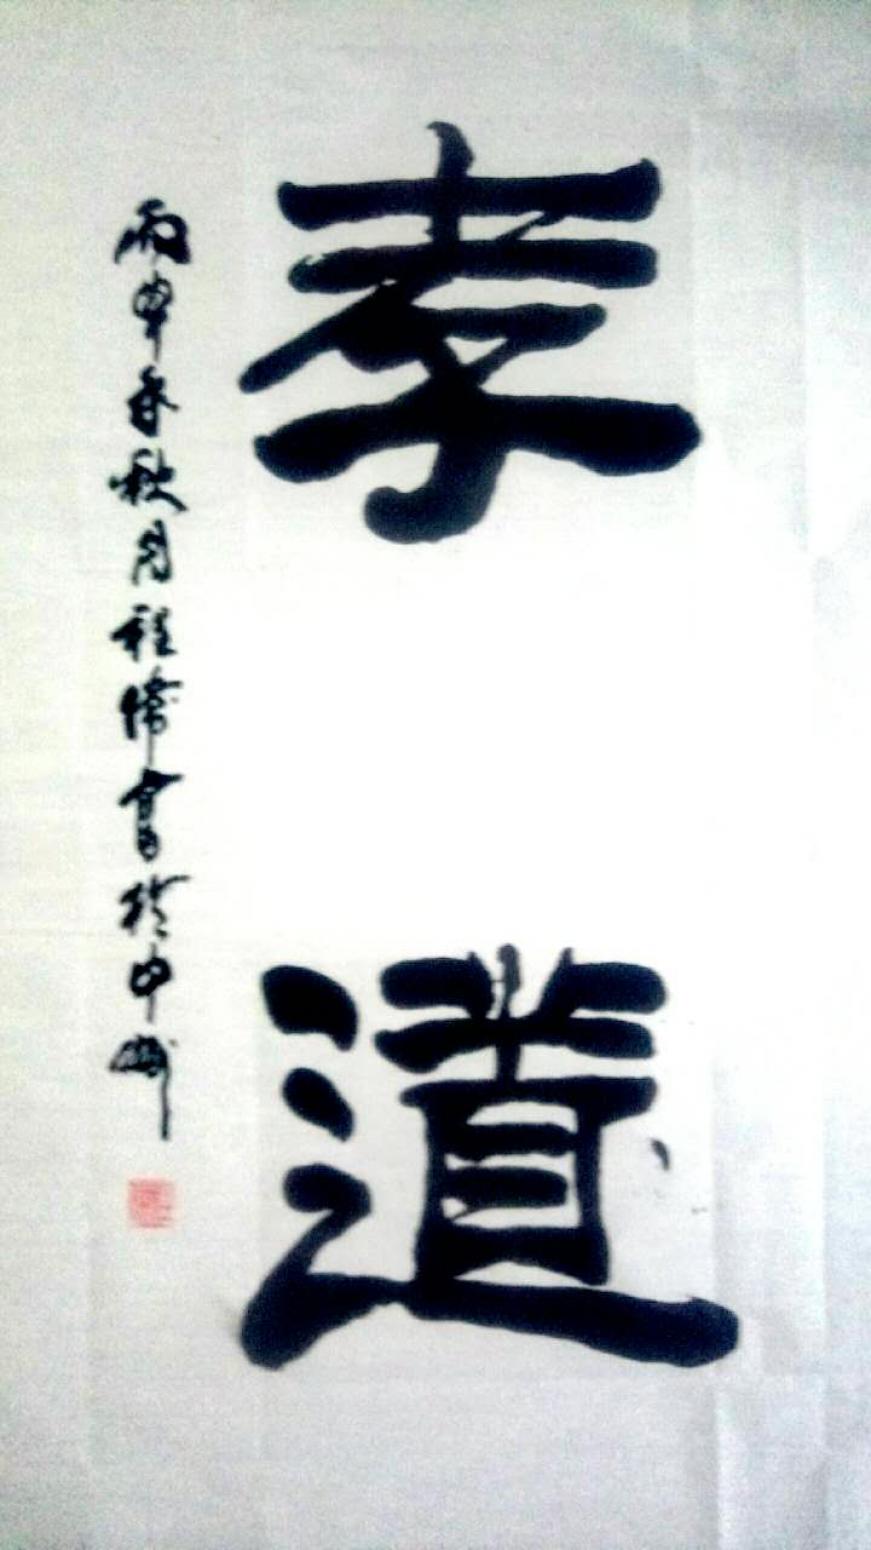 孝道
丙申年秋月程伟书於中州